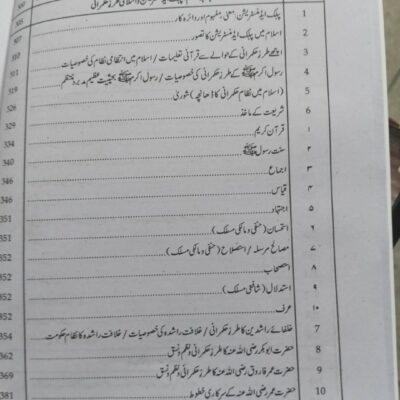 پبلک ایڈمنسٹریشن: معنی، مفہوم اور دائرہ کار 1
اسلام میں پبلک ایڈمنسٹریشن کا تصور 2 307
اچھے طرز حکمرانی کے حوالے سے قرآنی تعلیمات / اسلام میں انتظامی نظام کی خصوصیات 3 311
رسول اکرم ﷺ کے طرز حکمرانی کی خصوصیات / رسول اکرم ﷺ بحیثیت عظیم مدبر و منتظم 4 319
اسلام میں نظام حکمرانی کا ڈھانچہ (شوریٰ) 5 325
شریعت کے ماخذ 6 329
قرآن کریم 1 329
سنت رسول ﷺ ۲ 334
اجماع ۳ 340
قیاس ۴ 346
اجتہاد ۵ 346
استحسان (حنفی و مالکی مسلک) ۶ 351
مصالح مرسلہ / استصلاح (حنفی و مالکی مسلک) ۷ 352
استصحاب ۸ 352
استدلال (شافعی مسلک) ۹ 352
عرف ۱۰ 352
خلفائے راشدین کا طرز حکمرانی / خلافت راشدہ کی خصوصیات / خلافت راشدہ کا نظام حکومت 7 354
حضرت ابوبکر رضی اللہ عنہ کا طرز حکمرانی و نظم و نسق 8 362
حضرت عمر فاروق رضی اللہ عنہ کا طرز حکمرانی و نظم و نسق 9 369
حضرت عمر رضی اللہ عنہ کے سرکاری خطوط 10 381